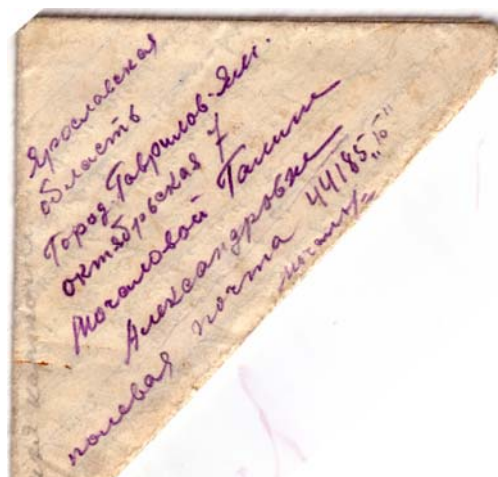 Ярославская
область
Город Гаврилов-Ям.
октябрьская 7
Мочаловой Галине
Александровне
полевая почта 44185 „Б"